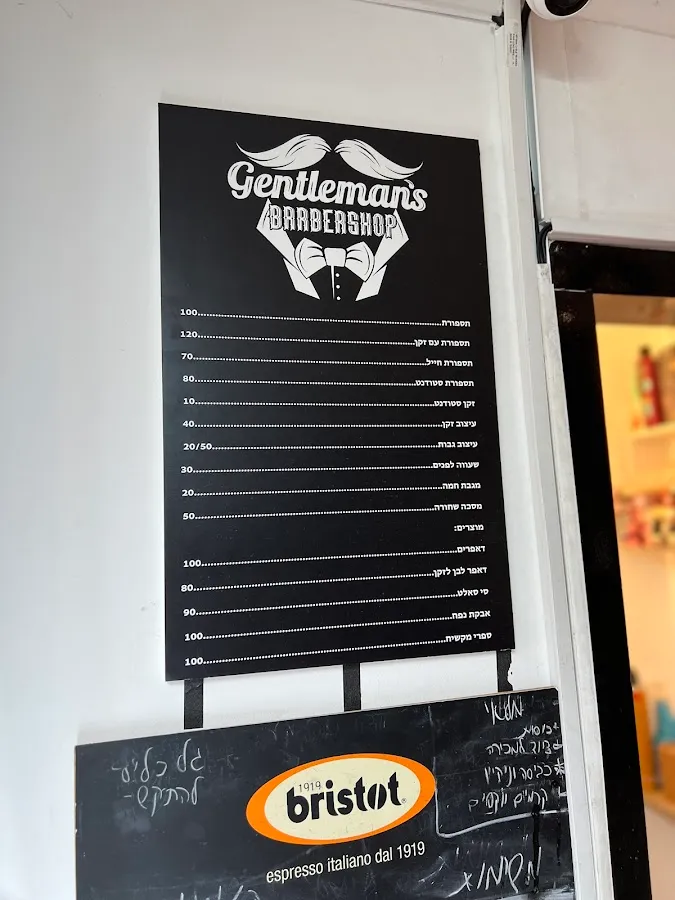 Gentleman's
BARBERSHOP
תספורת 100
תספורת עם זקן 120
תספורת חייל 70
תספורת סטודנט 80
זקן סטודנט 10
עיצוב זקן 40
עיצוב גבות 20/50
שעווה לפנים 30
מגבת חמה 20
מסכה שחורה 50
מוצרים:
דאפרים 100
דאפר לבן לזקן 80
סי סאלט 90
אבקת נפח 100
ספרי מקשיח 100
מלאי
כוסות
ציוד למכירה
כביסה וניקיון
קרמים ווקסים
גל כלים-
להתקשר-
1919
bristot
espresso italiano dal 1919
משימות